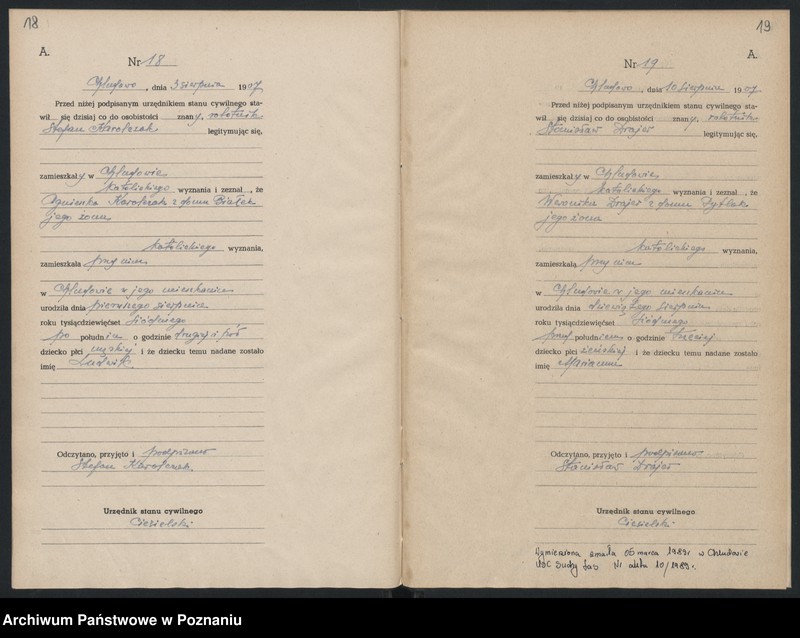 18
A.
Nr 18
Chludowo, dnia 3 sierpnia 1907
Przed niżej podpisanym urzędnikiem stanu cywilnego sta-
wił się dzisiaj co do osobistości znany, robotnik
Stefan Karolczak legitymując się,
zamieszkały w Chludowie
katolickiego wyznania i zeznał, że
Agnieszka Karolczak z domu Białek
jego żona
katolickiego wyznania,
zamieszkała przy nim
w Chludowie w jego mieszkaniu
urodziła dnia pierwszego sierpnia
roku tysiącdziewięćset siódmego
po południu o godzinie drugiej i pół
dziecko płci męskiej i że dziecku temu nadane zostało
imię Ludwik
Odczytano, przyjęto i podpisano
Stefan Karolczak.
Urzędnik stanu cywilnego
Ciesielski.
19
A.
Nr 19
Chludowo, dnia 10 sierpnia 1907
Przed niżej podpisanym urzędnikiem stanu cywilnego sta-
wił się dzisiaj co do osobistości znany, robotnik
Stanisław Drajer legitymując się,
zamieszkały w Chludowie
katolickiego wyznania i zeznał, że
Weronika Drajer z domu
jego żona
katolickiego wyznania,
zamieszkała przy nim
w Chludowie w jego mieszkaniu
urodziła dnia dziewiątego sierpnia
roku tysiącdziewięćset siódmego
przed południem o godzinie trzeciej
dziecko płci żeńskiej i że dziecku temu nadane zostało
imię Marianna
Odczytano, przyjęto i podpisano
Stanisław Drajer
Urzędnik stanu cywilnego
Ciesielski.
Wymieniona zmarła 06 marca 1989r w Chludowie
USC Suchy Las Nr aktu 10/1989r.
Archiwum Państwowe w Poznaniu